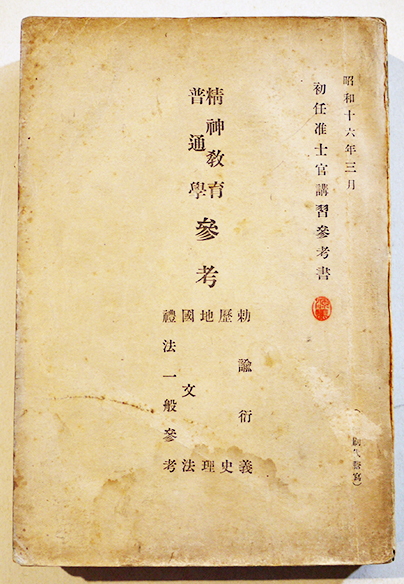 昭和十六年三月
初任准士官講習參考書
精神教育
普通學
參考
勅諭衍義
歷史
地理
國文法
禮法一般參考